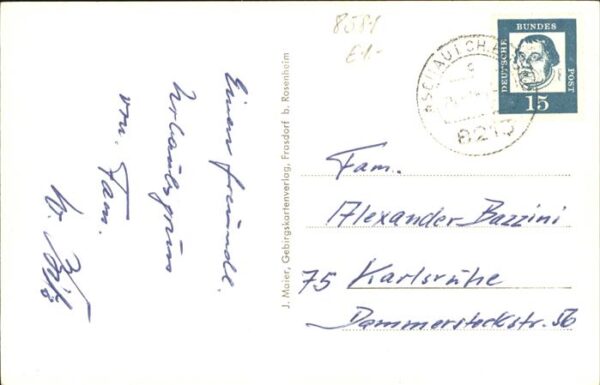 8581
€1.-
Einen freundl.
Urlaubsgruss
von Fam.
W.
J. Maier, Gebirgskartenverlag, Frasdorf b. Rosenheim
ASCHAU I. CH.
c
8213
DEUTSCHE
BUNDES
POST
15
Fam.
Alexander Bazzini
75 Karlsruhe
Dammerstockstr. 56